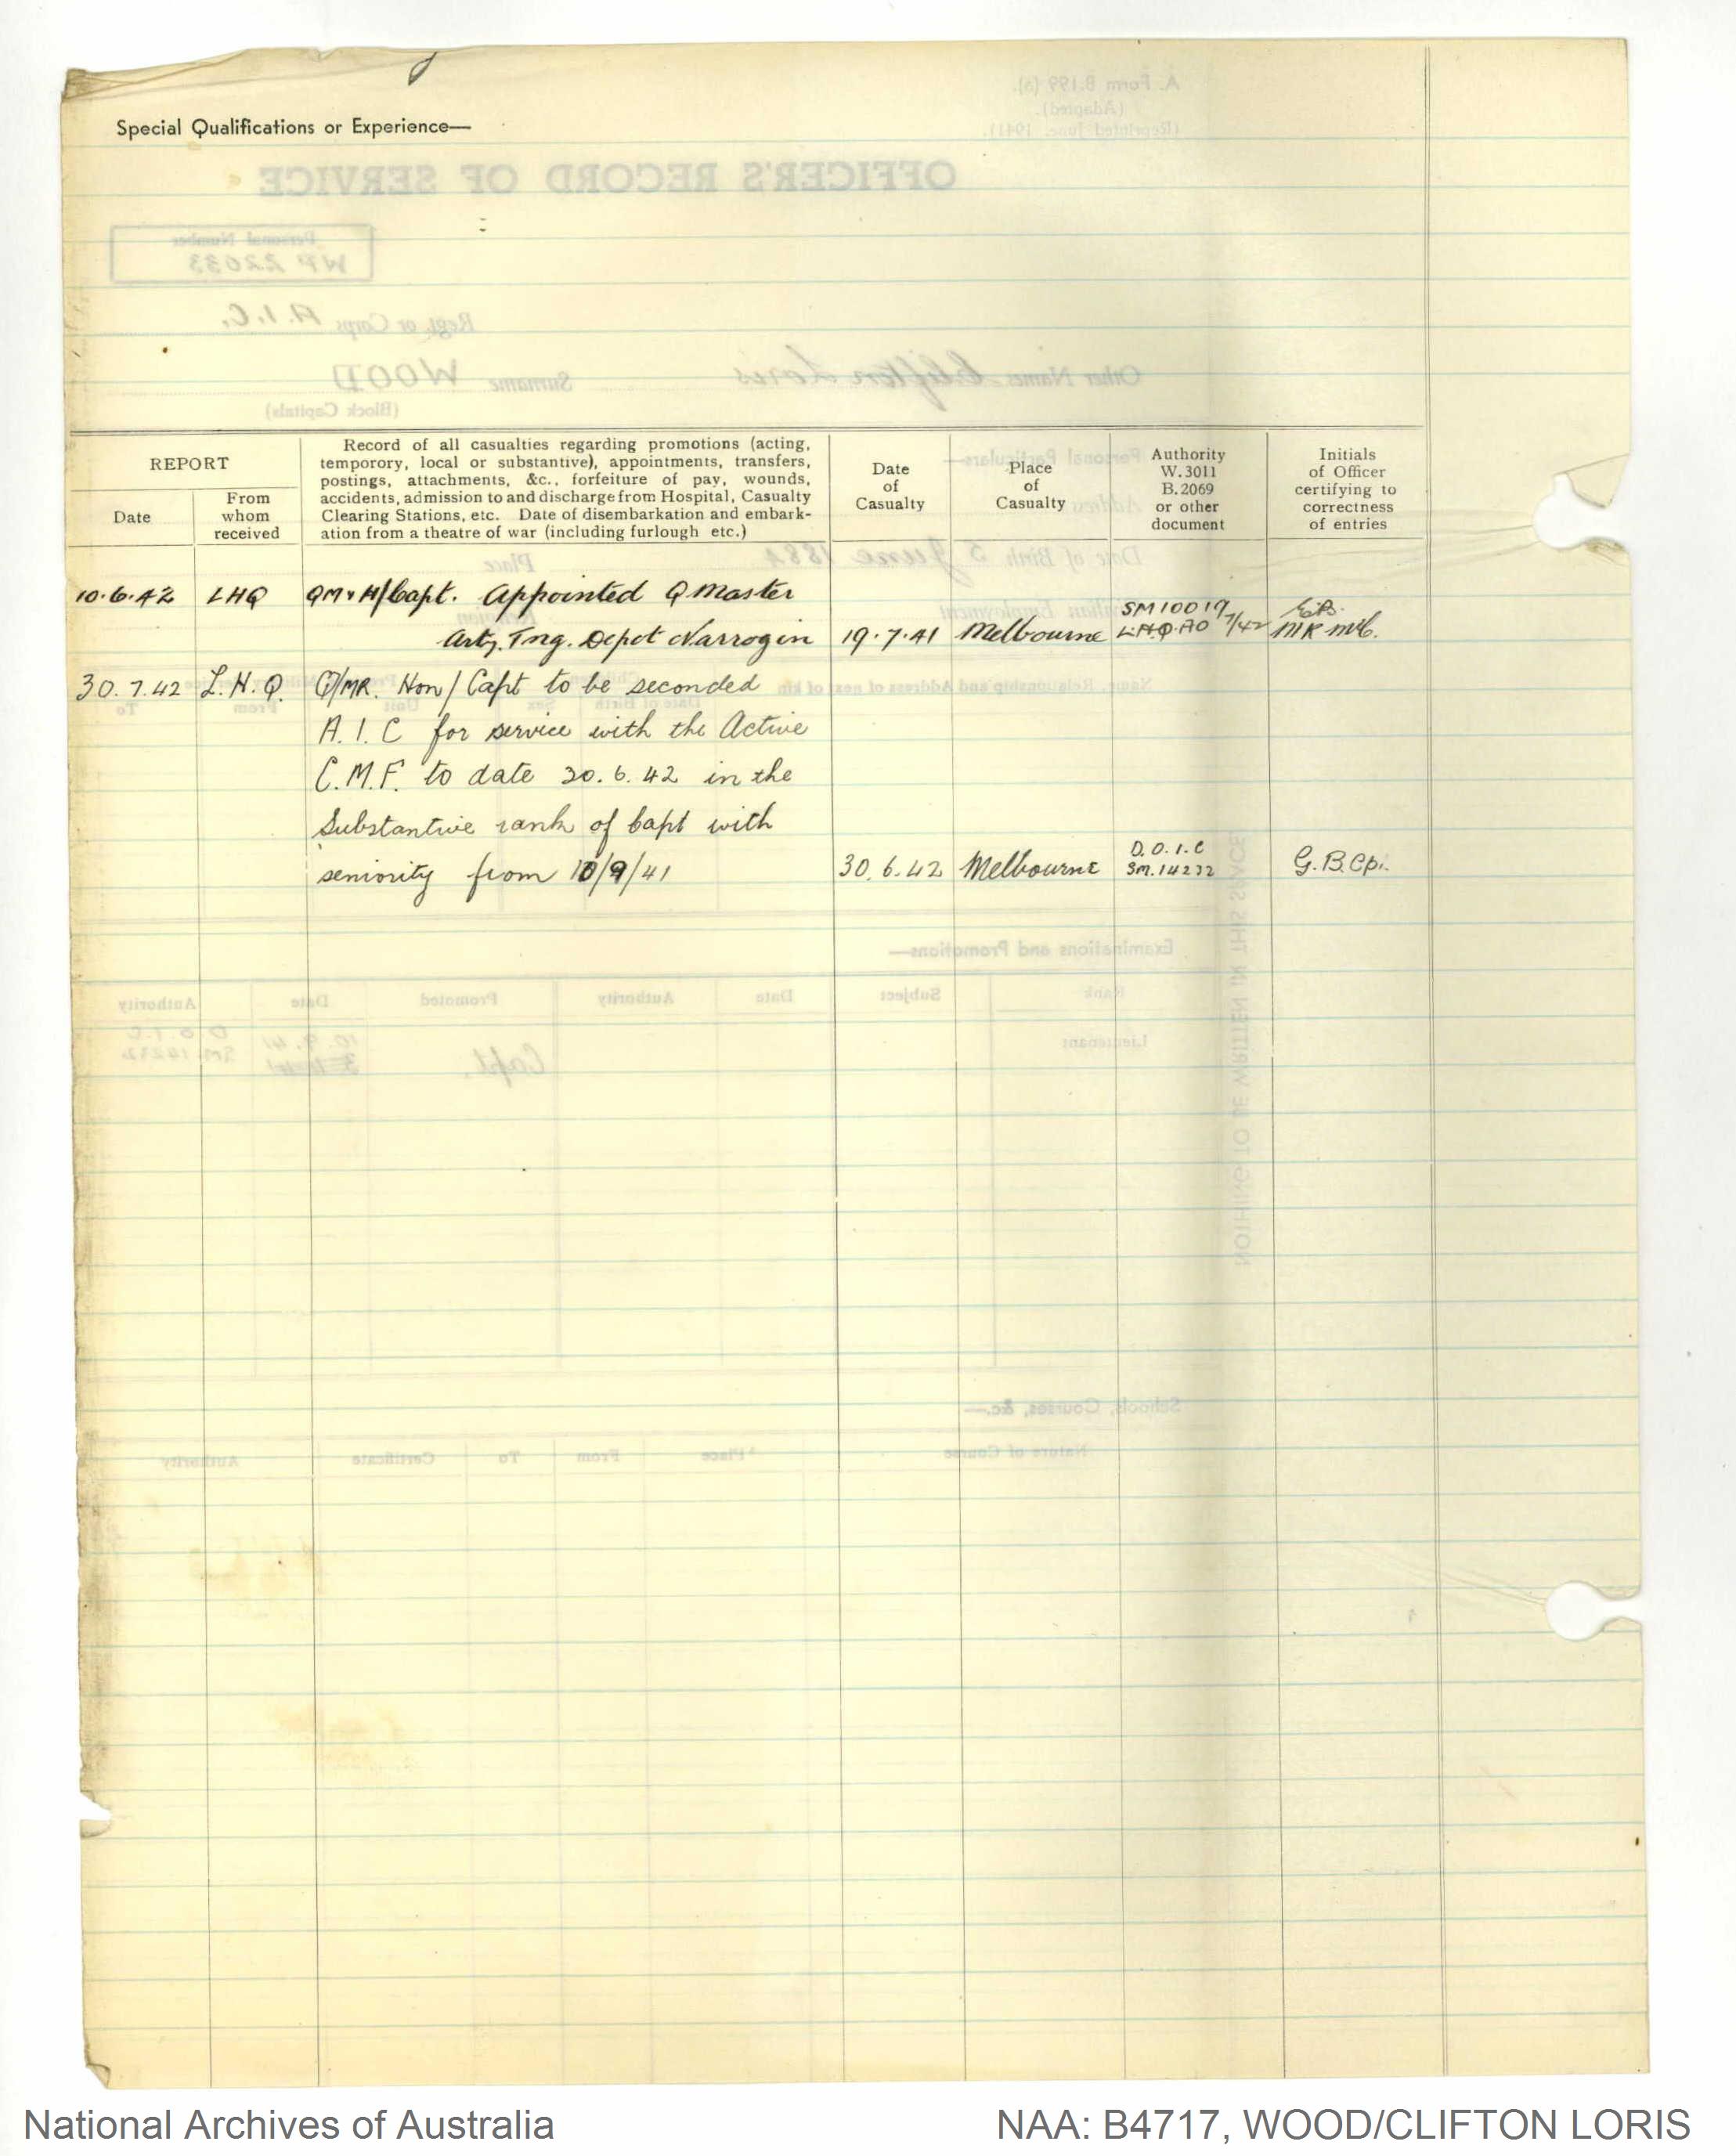 Special Qualifications or Experience—
REPORT
Date
From
whom
received
Record of all casualties regarding promotions (acting,
temporory, local or substantive), appointments, transfers,
postings, attachments, &c., forfeiture of pay, wounds,
accidents, admission to and discharge from Hospital, Casualty
Clearing Stations, etc. Date of disembarkation and embark-
ation from a theatre of war (including furlough etc.)
Date
of
Casualty
Place
of
Casualty
Authority
W.3011
B.2069
or other
document
Initials
of Officer
certifying to
correctness
of entries
10.6.42 LHQ QM & H/Capt. Appointed Q Master
Arty. Tng. Depot Narrogin 19.7.41 Melbourne
SM10019
30.7.42 L.H.Q. Q/MR. Hon/Capt to be seconded
A.I.C for service with the Active
C.M.F. to date 30.6.42 in the
Substantive rank of Capt with
seniority from 10/9/41 30.6.42 Melbourne
D.O.I.C
SM.14232
National Archives of Australia
NAA: B4717, WOOD/CLIFTON LORIS